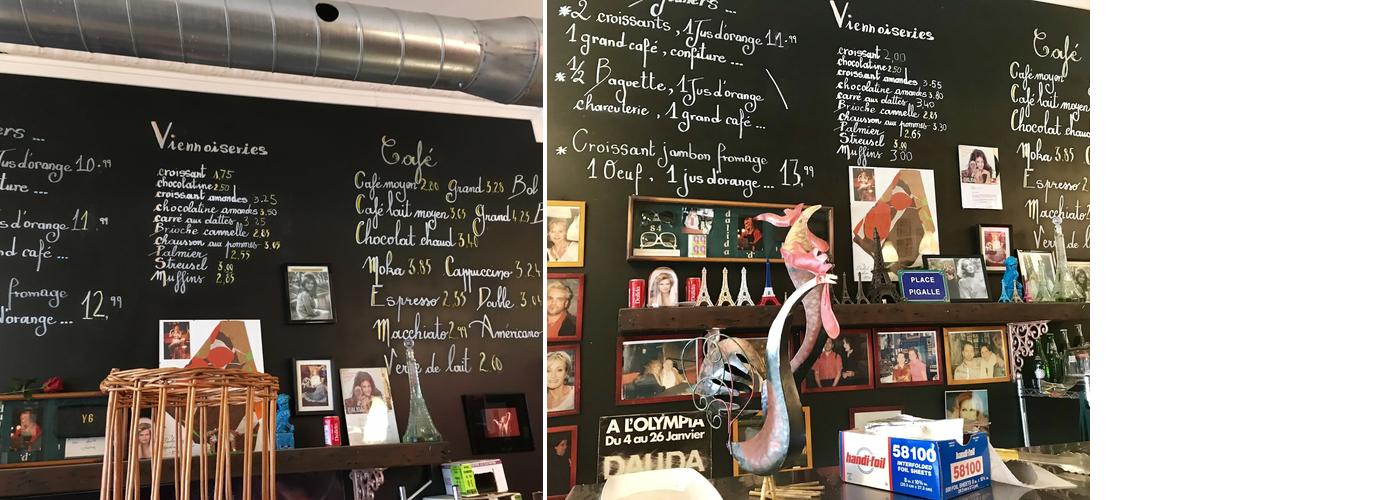 ers ...
Jus d'orange 10.99
ture ...
s d'orange 11.99
nd café ...
fromage
d'orange ... 12,99
Viennoiseries
croissant 1,75
chocolatine 2.50
croissant amandes 3.25
chocolatine amandes 3.50
carré aux dattes 3.25
Brioche cannelle 2.85
chausson aux pommes 3.05
Palmier 2.55
Streusel 3,00
Muffins 2,85
Café
Café moyen 2.80 Grand 3.20 Bol
Café lait moyen 3.65 Grand 4.25
Chocolat chaud 3,40
Moka 3.85 Cappuccino 3.2
Espresso 2.55 Dalle 3.0
Macchiato 2.99 Américano
Verre de lait 2.60
Y6
DALIDA
*2 croissants, 1 Jus d'orange 11.99
1 grand café, confiture ...
* 1/2 Baguette, 1 Jus d'orange
charcuterie, 1 grand café ...
* Croissant jambon fromage
1 Oeuf, 1 jus d'orange ... 13,99
Viennoiseries
croissant 2,00
chocolatine 2.50
croissant amandes 3.55
chocolatine amandes 3.80
carré aux dattes 3,40
Brioche cannelle 2.85
chausson aux pommes 3.30
Palmier 2,65
Streusel 3,00
Muffins 3.00
Café
Café moyen
Café lait moyen
Chocolat chaud
Moka 3.85 C
Espresso 2
Macchiato
Verre de l
dalida
PLACE
PIGALLE
A L'OLYMPIA
Du 4 au 26 Janvier
DALIDA
handi-foil
58100
INTERFOLDED
FOIL SHEETS
handi-foil
58100